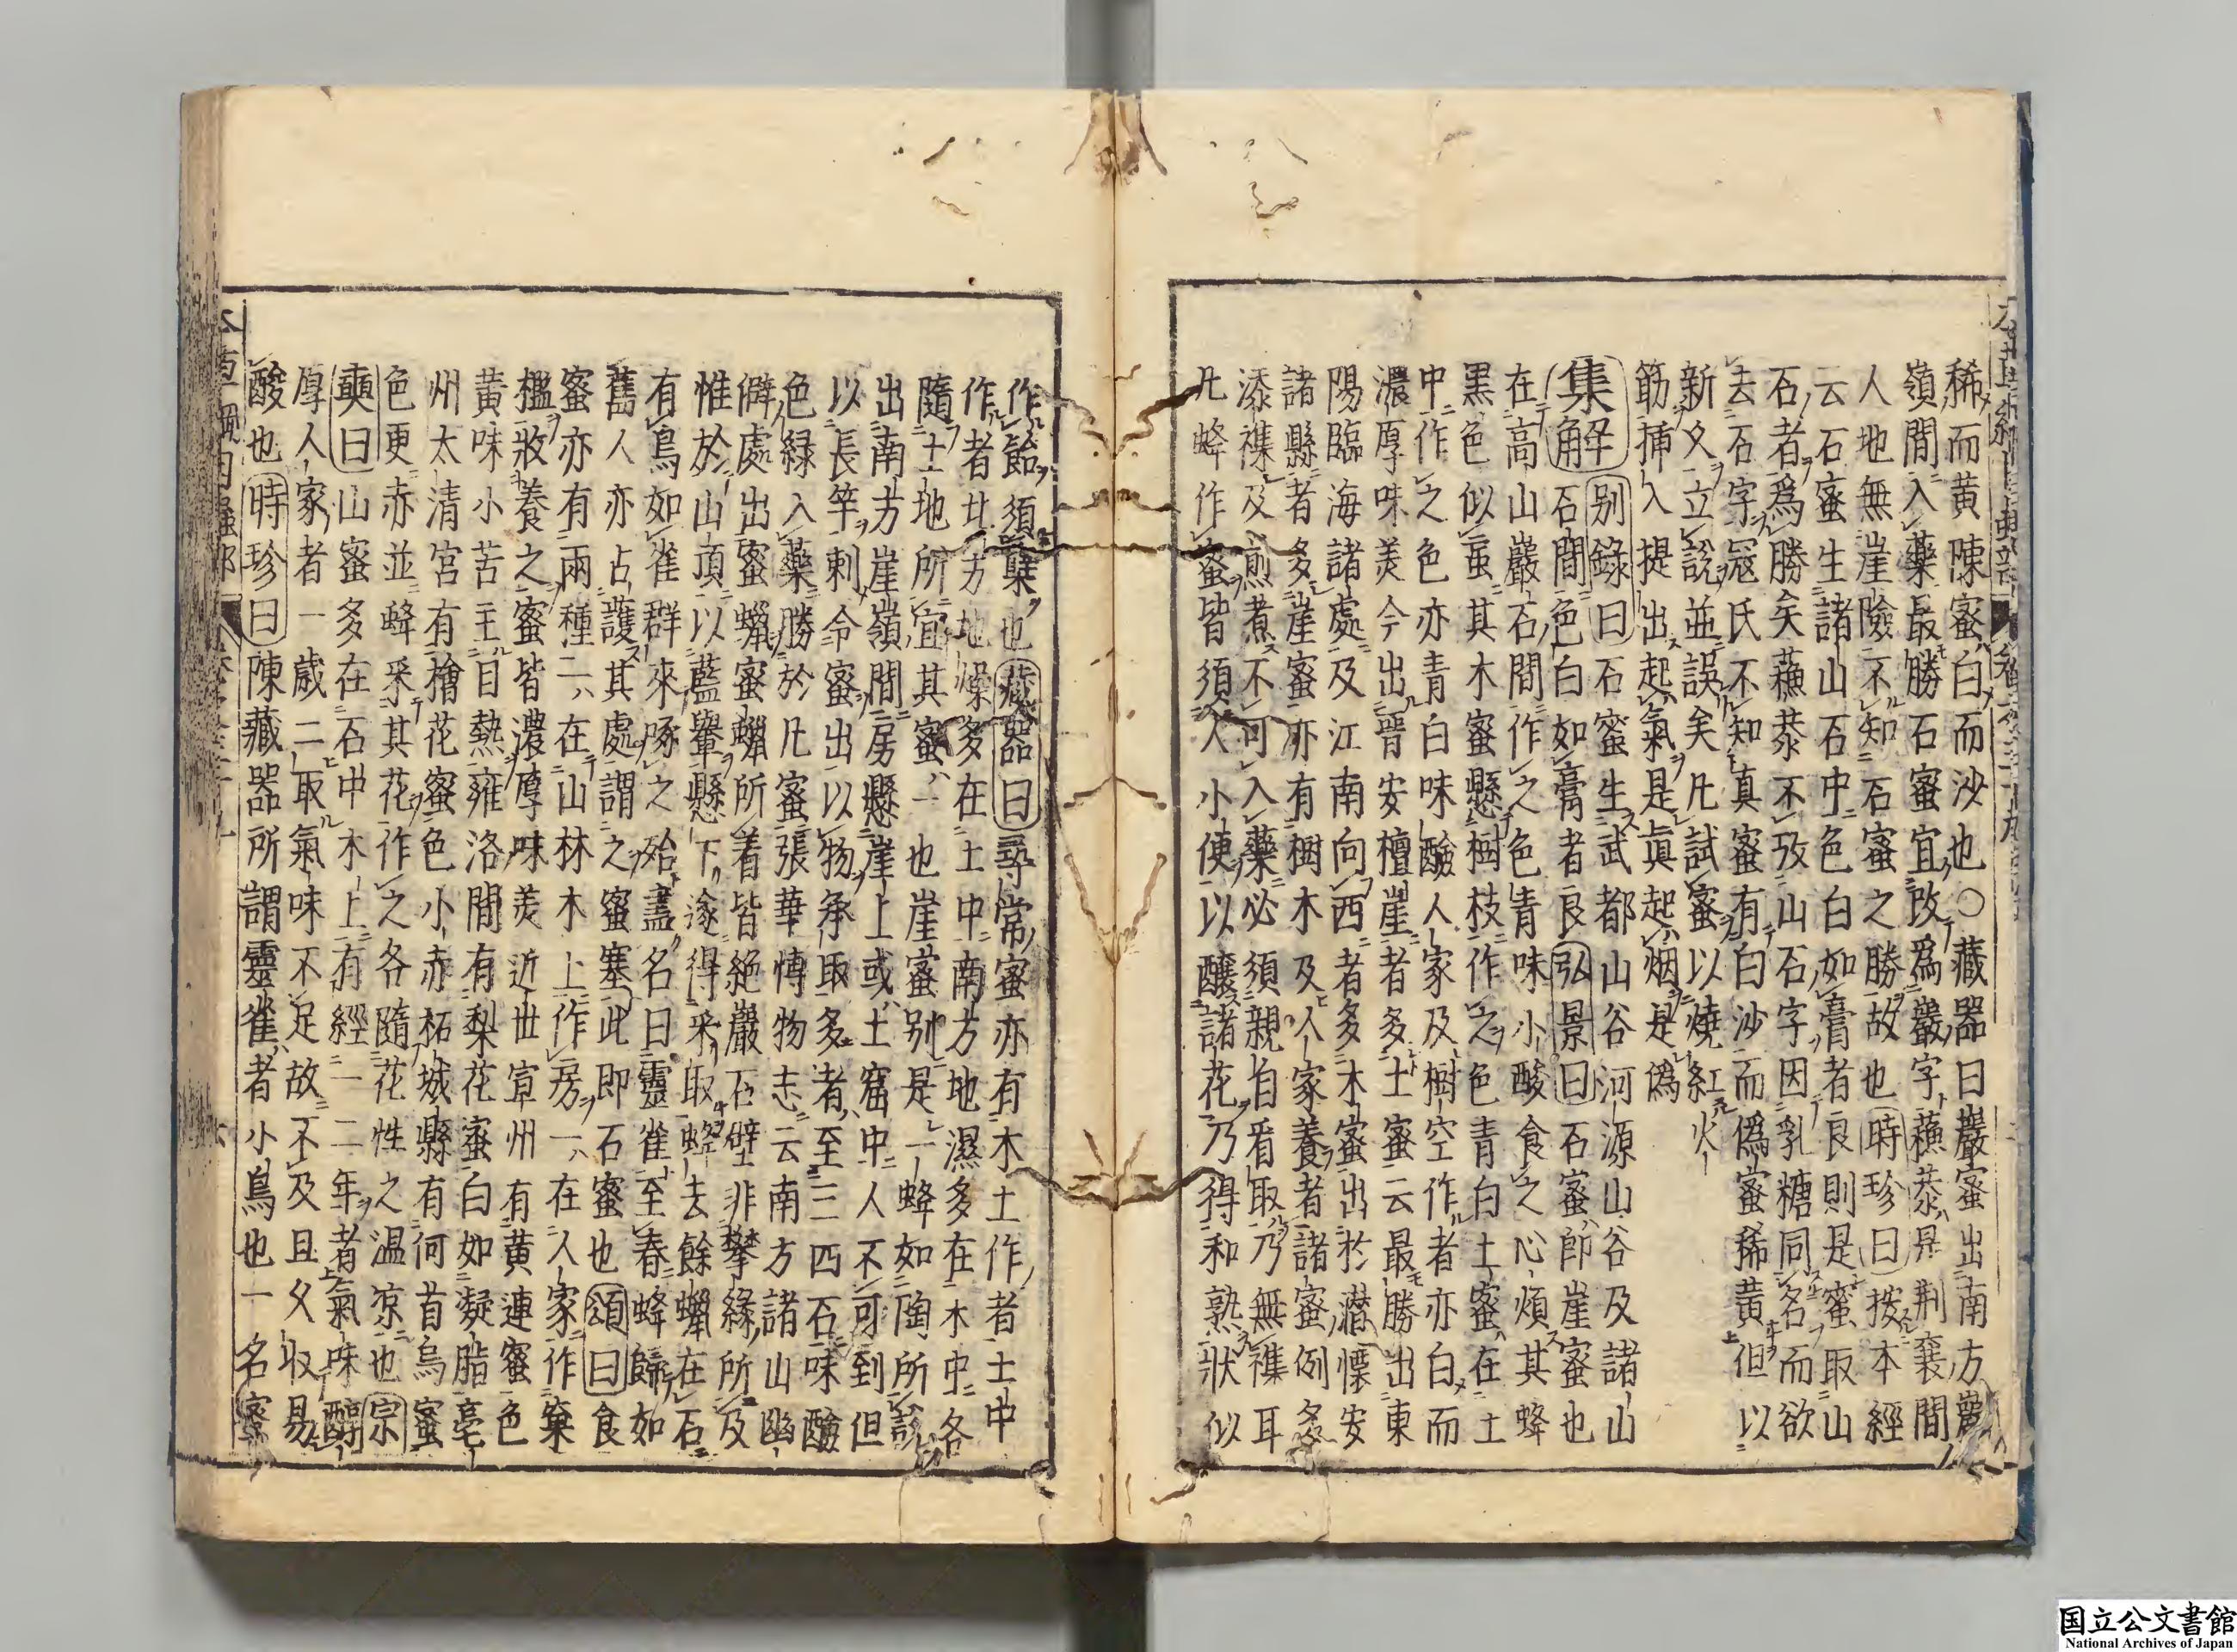 稀而黄陳蜜白而沙也○藏器曰巖蜜出南方巖
嶺間入藥最勝石蜜宜改爲巖字蘓恭是荆襄間
人地無崖險不知石蜜之勝故也時珍曰按本經
云石蜜生諸山石中色白如膏者良則是蜜取山
石者爲勝矣蘓恭不攷山石字因乳糖同名而欲
去石字冦氏不知真蜜有白沙而偽蜜稀黄但以
新久立說並誤矣凡試蜜以燒紅火
筯揷入提出起氣是眞起烟是偽
集解别錄曰石蜜生武都山谷河源山谷及諸山
石間色白如膏者良弘景曰石蜜即崖蜜也
在高山巖石間作之色青味小酸食之心煩其蜂
黒色似䖟其木蜜懸樹枝作之色青白土蜜在土
中作之色亦青白味醶人家及樹空作者亦白而
濃厚味美今出晋安檀崖者多土蜜云最勝出東
陽臨海諸處及江南向西者多木蜜出於潜懷安
諸縣者多崖蜜亦有樹木及人家養者諸蜜例多
添襍及煎煮不可入藥必須親自看取乃無襍耳
凡蜂作蜜皆須人小便以釀諸花乃得和熟狀似
作飴須糵也藏器曰尋常蜜亦有木上作者土中
作者北方地燥多在土中南方地濕多在木中各
隨土地所宜其蜜一也崖蜜别是一蜂如陶所說
出南方崖嶺間房懸崖上或土窟中人不可到但
以長竿刺令蜜出以物承取多者至三四石味醶
色緑入藥勝於凡蜜張華博物志云南方諸山幽
僻處出蜜蠟蜜蠟所着皆絶巖石壁非攀緣所及
惟於山頂以藍轝懸下遂得采取蜂去餘蠟在石
有鳥如雀群來啄之殆盡名曰靈雀至春蜂歸如
舊人亦占護其處謂之蜜塞此即石蜜也頌曰食
蜜亦有兩種一在山林木上作房一在人家作窠
檻收養之蜜皆濃厚味美近世宣州有黄連蜜色
黄味小苦主目熱雍洛間有梨花蜜白如凝脂亳
州太清宮有檜花蜜色小赤柘城縣有何首烏蜜
色更赤並蜂采其花作之各隨花性之温凉也宗
奭曰山蜜多在石中木上有經一二年者氣味醇
厚人家者一歳二取氣味不足故不及且久收易
酸也時珍曰陳藏器所謂靈雀者小鳥也一名蜜
国立公文書館
National Archives of Japan